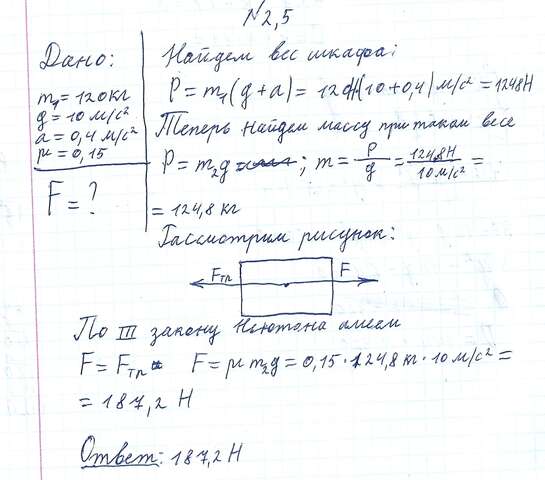 №2,5
Дано:
m₁ = 120 кг
g = 10 м/с²
a = 0,4 м/с²
μ = 0,15
F = ?
Найдем вес шкафа:
P = m₁(g + a) = 120(10 + 0,4) м/с² = 1248 Н
Теперь найдем массу при таком весе
P = m₂g; m = P/g = 1248 Н/10 м/с² =
= 124,8 кг
Рассмотрим рисунок:
Fтр F
По III закону Ньютона имеем
F = Fтр F = μ m₂g = 0,15 · 124,8 кг · 10 м/с² =
= 187,2 Н
Ответ: 187,2 Н